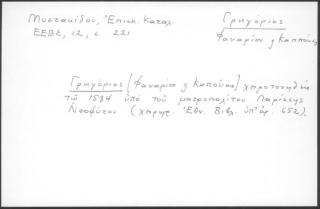 Μυστακίδου, Ἐπισκ. Καταλ.
ΕΕΒΣ, 12, σ. 221
Γρηγόριος
Φαναρίου & Καππούας
Γρηγόριος [Φαναρίου & Καπούας] χειροτονηθεὶς
τῷ 1594 ὑπὸ τοῦ μητροπολίτου Λαρίσσης
Νεοφύτου (χειρογ. Ἐθν. Βιβλ. ὑπ' ἀρ. 652).